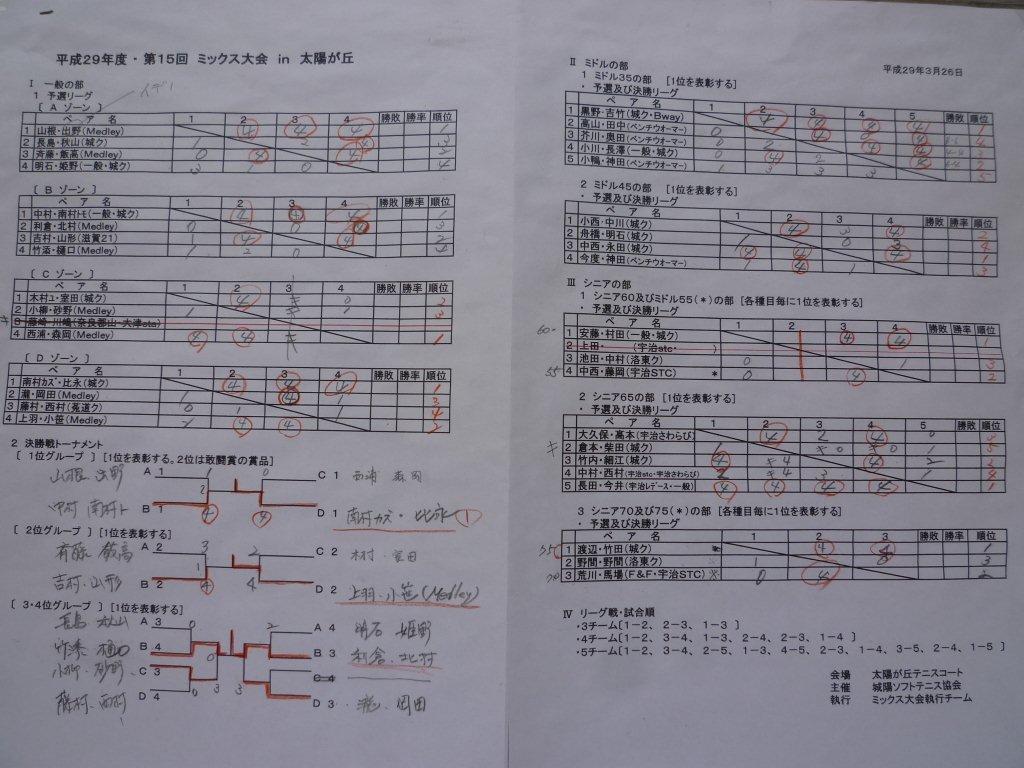 平成29年度・第15回 ミックス大会 in 太陽が丘
Ⅰ 一般の部
1 予選リーグ
[ A ゾーン ]
ペア名 1 2 3 4 勝敗 勝率 順位
1 山根・出野(Medley) ④ ④ ④ 1
2 長島・秋山(城ク)
3 斉藤・飯高(Medley) 0 ④
4 明石・姫野(一般・城ク) 3 1 0 4
[ B ゾーン ]
ペア名 1 2 3 4 勝敗 勝率 順位
1 中村・南村トモ(一般・城ク) ④ ④ 1
2 利倉・北村(Medley) 0 0 3
3 吉村・山形(滋賀21) 1 ④ ④ 2
4 竹添・樋口(Medley) 1 2 0
[ C ゾーン ]
ペア名 1 2 3 4 勝敗 勝率 順位
1 木村ユ・室田(城ク) ④ 0 2
2 小柳・砂野(Medley) 1 0 3
3 藤崎・川嶋(奈良郡山・大津sta)
4 西浦・森岡(Medley) ④ ④ 1
[ D ゾーン ]
ペア名 1 2 3 4 勝敗 勝率 順位
1 南村カズ・比永(城ク) ④ ④ ④ 1
2 瀧・岡田(Medley) 1 ④ 1 3
3 藤村・西村(莵道ク) 0 1 1 4
4 上羽・小笹(Medley) 2 ④ ④ 2
2 決勝戦トーナメント
[ 1位グループ ] [1位を表彰する。2位は敢闘賞の賞品]
山根 出野 A 1 1 0 C 1 西浦 森岡
中村 南村ト B 1 2 ④ ④ D 1 南村カズ・比永 ①
[ 2位グループ ] [1位を表彰する]
斉藤 飯高 A 2 3 2 C 2 木村 室田
吉村・山形 B 2 1 ④ ④ D 2 上羽・小笹(Medley)
[ 3・4位グループ ] [1位を表彰する]
長島 秋山 A 3 0 2 A 4 明石 姫野
竹添 樋口 B 4 B 3 利倉・北村
小柳・砂野 C 3 0 C 4
藤村・西村 D 4 0 3 3 D 3 瀧・岡田
Ⅱ ミドルの部
平成29年3月26日
1 ミドル35の部 [1位を表彰する]
・ 予選及び決勝リーグ
ペア名 1 2 3 4 5 勝敗 勝率 順位
1 黒野・吉竹(城ク・Bway) ④ ④ ④ ④ 1
2 高山・田中(ベンチウオーマー) 0 ④
3 芥川・奥田(ベンチウオーマー) 0
4 小川・長澤(一般・城ク)
5 小鴨・神田(ベンチウオーマー) 1 3 3 3 5
2 ミドル45の部 [1位を表彰する]
・ 予選及び決勝リーグ
ペア名 1 2 3 4 勝敗 勝率 順位
1 小西・中川(城ク) ④ 3 2
2 舟橋・明石(城ク) 0
3 中西・永田(城ク) ④ ④ ④ 1
4 今度・神田(ベンチウオーマー) ④ 1 3
Ⅲ シニアの部
1 シニア60及びミドル55(*)の部 [各種目毎に1位を表彰する]
・ 予選及び決勝リーグ
ペア名 1 2 3 4 勝敗 勝率 順位
60 1 安藤・村田(一般・城ク) ④ ④ 1
2 上田・ (宇治stc・ )
3 池田・中村(洛東ク) 0 1 3
55 4 中西・藤岡(宇治STC) * 0 ④ 2
2 シニア65の部 [1位を表彰する]
・ 予選及び決勝リーグ
ペア名 1 2 3 4 5 勝敗 勝率 順位
1 大久保・高本(宇治さわらび) ④ 2 ④ 0
2 倉本・柴田(城ク)
3 竹内・細江(城ク) ④ ④ 2
4 中村・西村(宇治stc・宇治さわらび)
5 長田・今井(宇治レデース・一般) ④ ④ ④ ④ 1
3 シニア70及び75(*)の部 [各種目毎に1位を表彰する]
・ 予選及び決勝リーグ
ペア名 1 2 3 勝敗 勝率 順位
1 渡辺・竹田(城ク) * ④ ④ 1
2 野間・野間(洛東ク) 1 0 3
70 3 荒川・馬場(F&F・宇治STC) 0 ④ 2
Ⅳ リーグ戦・試合順
・3チーム[1－2、2－3、1－3 ]
・4チーム[1－2、3－4、1－3、2－4、2－3、1－4 ]
・5チーム[1－2、3－4、2－5、1－3、4－5、2－3、1－4、3－5、2－4、1－5 ]
会場 太陽が丘テニスコート
主催 城陽ソフトテニス協会
執行 ミックス大会執行チーム